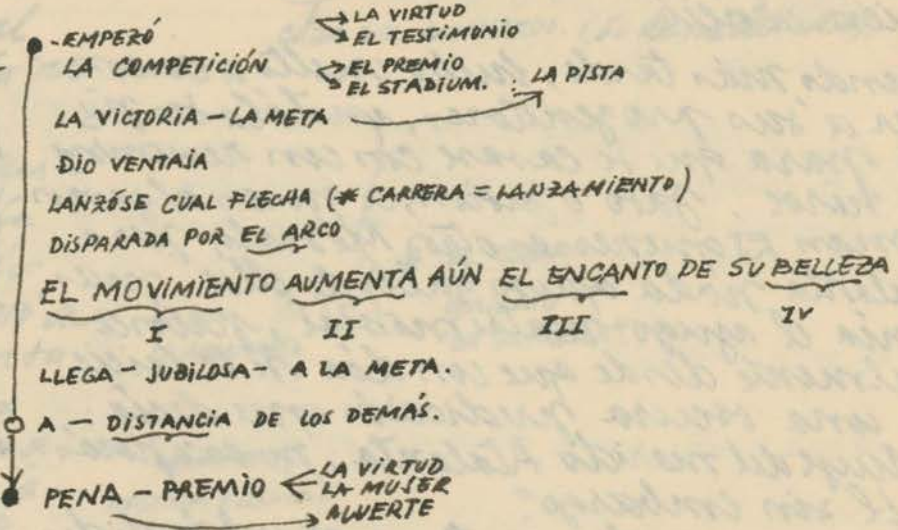 LA VIRTUD
- EMPEZÓ EL TESTIMONIO
LA COMPETICIÓN EL PREMIO
EL STADIUM. : LA PISTA
LA VICTORIA - LA META
DIO VENTAJA
LANZÓSE CUAL FLECHA (* CARRERA = LANZAMIENTO)
DISPARADA POR EL ARCO
EL MOVIMIENTO AUMENTA AÚN EL ENCANTO DE SU BELLEZA
I II III IV
LLEGA - JUBILOSA - A LA META.
A - DISTANCIA DE LOS DEMÁS.
LA VIRTUD
PENA - PREMIO LA MUJER
MUERTE